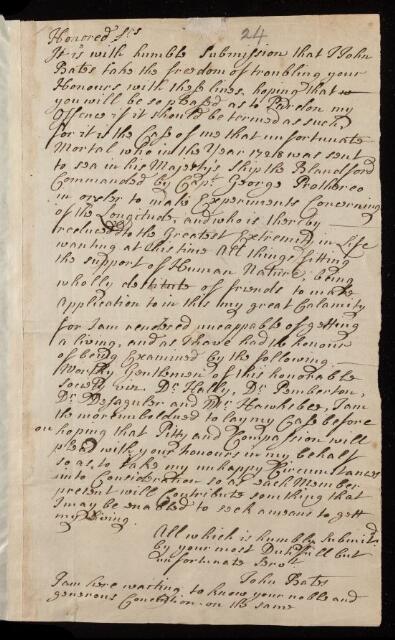 24
Honored Srs
It is with humble Submission that I John
Bates take the freedom of troubling your
Honours with these lines, hoping that
you will be so pleased as to Pardon my
Offence if it should be termed as such,
for it is the Case of me that unfortunate
Mortal who in the Year 1726 was sent
to sea in his Majestys ship the Blandford
Commanded by Capt George Prothereo
in order to make Experiments concerning
of the Longitude, and who is thereby
reduced to the Greatest Extremity in Life
wanting at this time All things fitting
the support of Human Nature, being
wholly destitute of friends to make
Application to in this my great Calamity
for I am rendered uncappable of getting
a living, and as I have had the honour
of being Examined by the following
Worthy Gentlemen of this honorable
Society viz. Dr Hally, Dr Pemberton,
Dr Desaguler and Mr Hawksbee, I am
the more imboldned to lay my Case before
on
hoping that Pitty and Compassion will
plead with your honours in my behalf
so as to take my unhappy Circumstances
into Consideration so as each Member
present will Contribute somthing that
I may be enabled to seek a means to gett
my Living.
All which is humbly Submitd
by your most Dutifull but
unfortunate Brotr
John Bates
I am here waiting to know your noble and
generous on the same